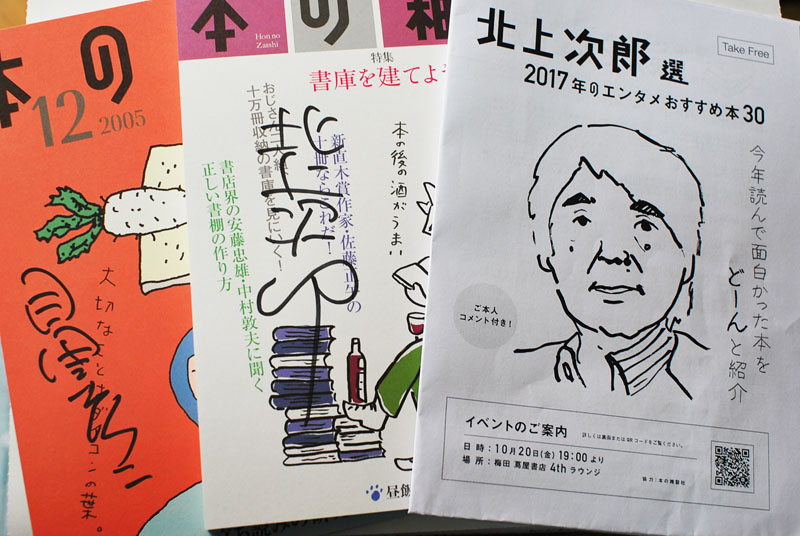 本の
12
2005
大切な
の葉。
本の
Hon no
Zasshi
特集
書庫を建てよ
新直木賞作家・佐藤正午の
十冊ならこれだ！
おじさん
十万冊収納の書庫を見にいく！
書店界の安藤忠雄・中村敦夫に聞く
正しい書棚の作り方
本の後の酒がうまい
昼飯
北上次郎 選
Take Free
2017年のエンタメおすすめ本30
今年読んで面白かった本を
どーんと紹介
ご本人
コメント付き！
イベントのご案内
詳しくは裏面またはQRコードをご覧ください。
日 時：10月20日(金) 19:00 より
場 所：梅田 蔦屋書店 4th ラウンジ
協力：本の雑誌社